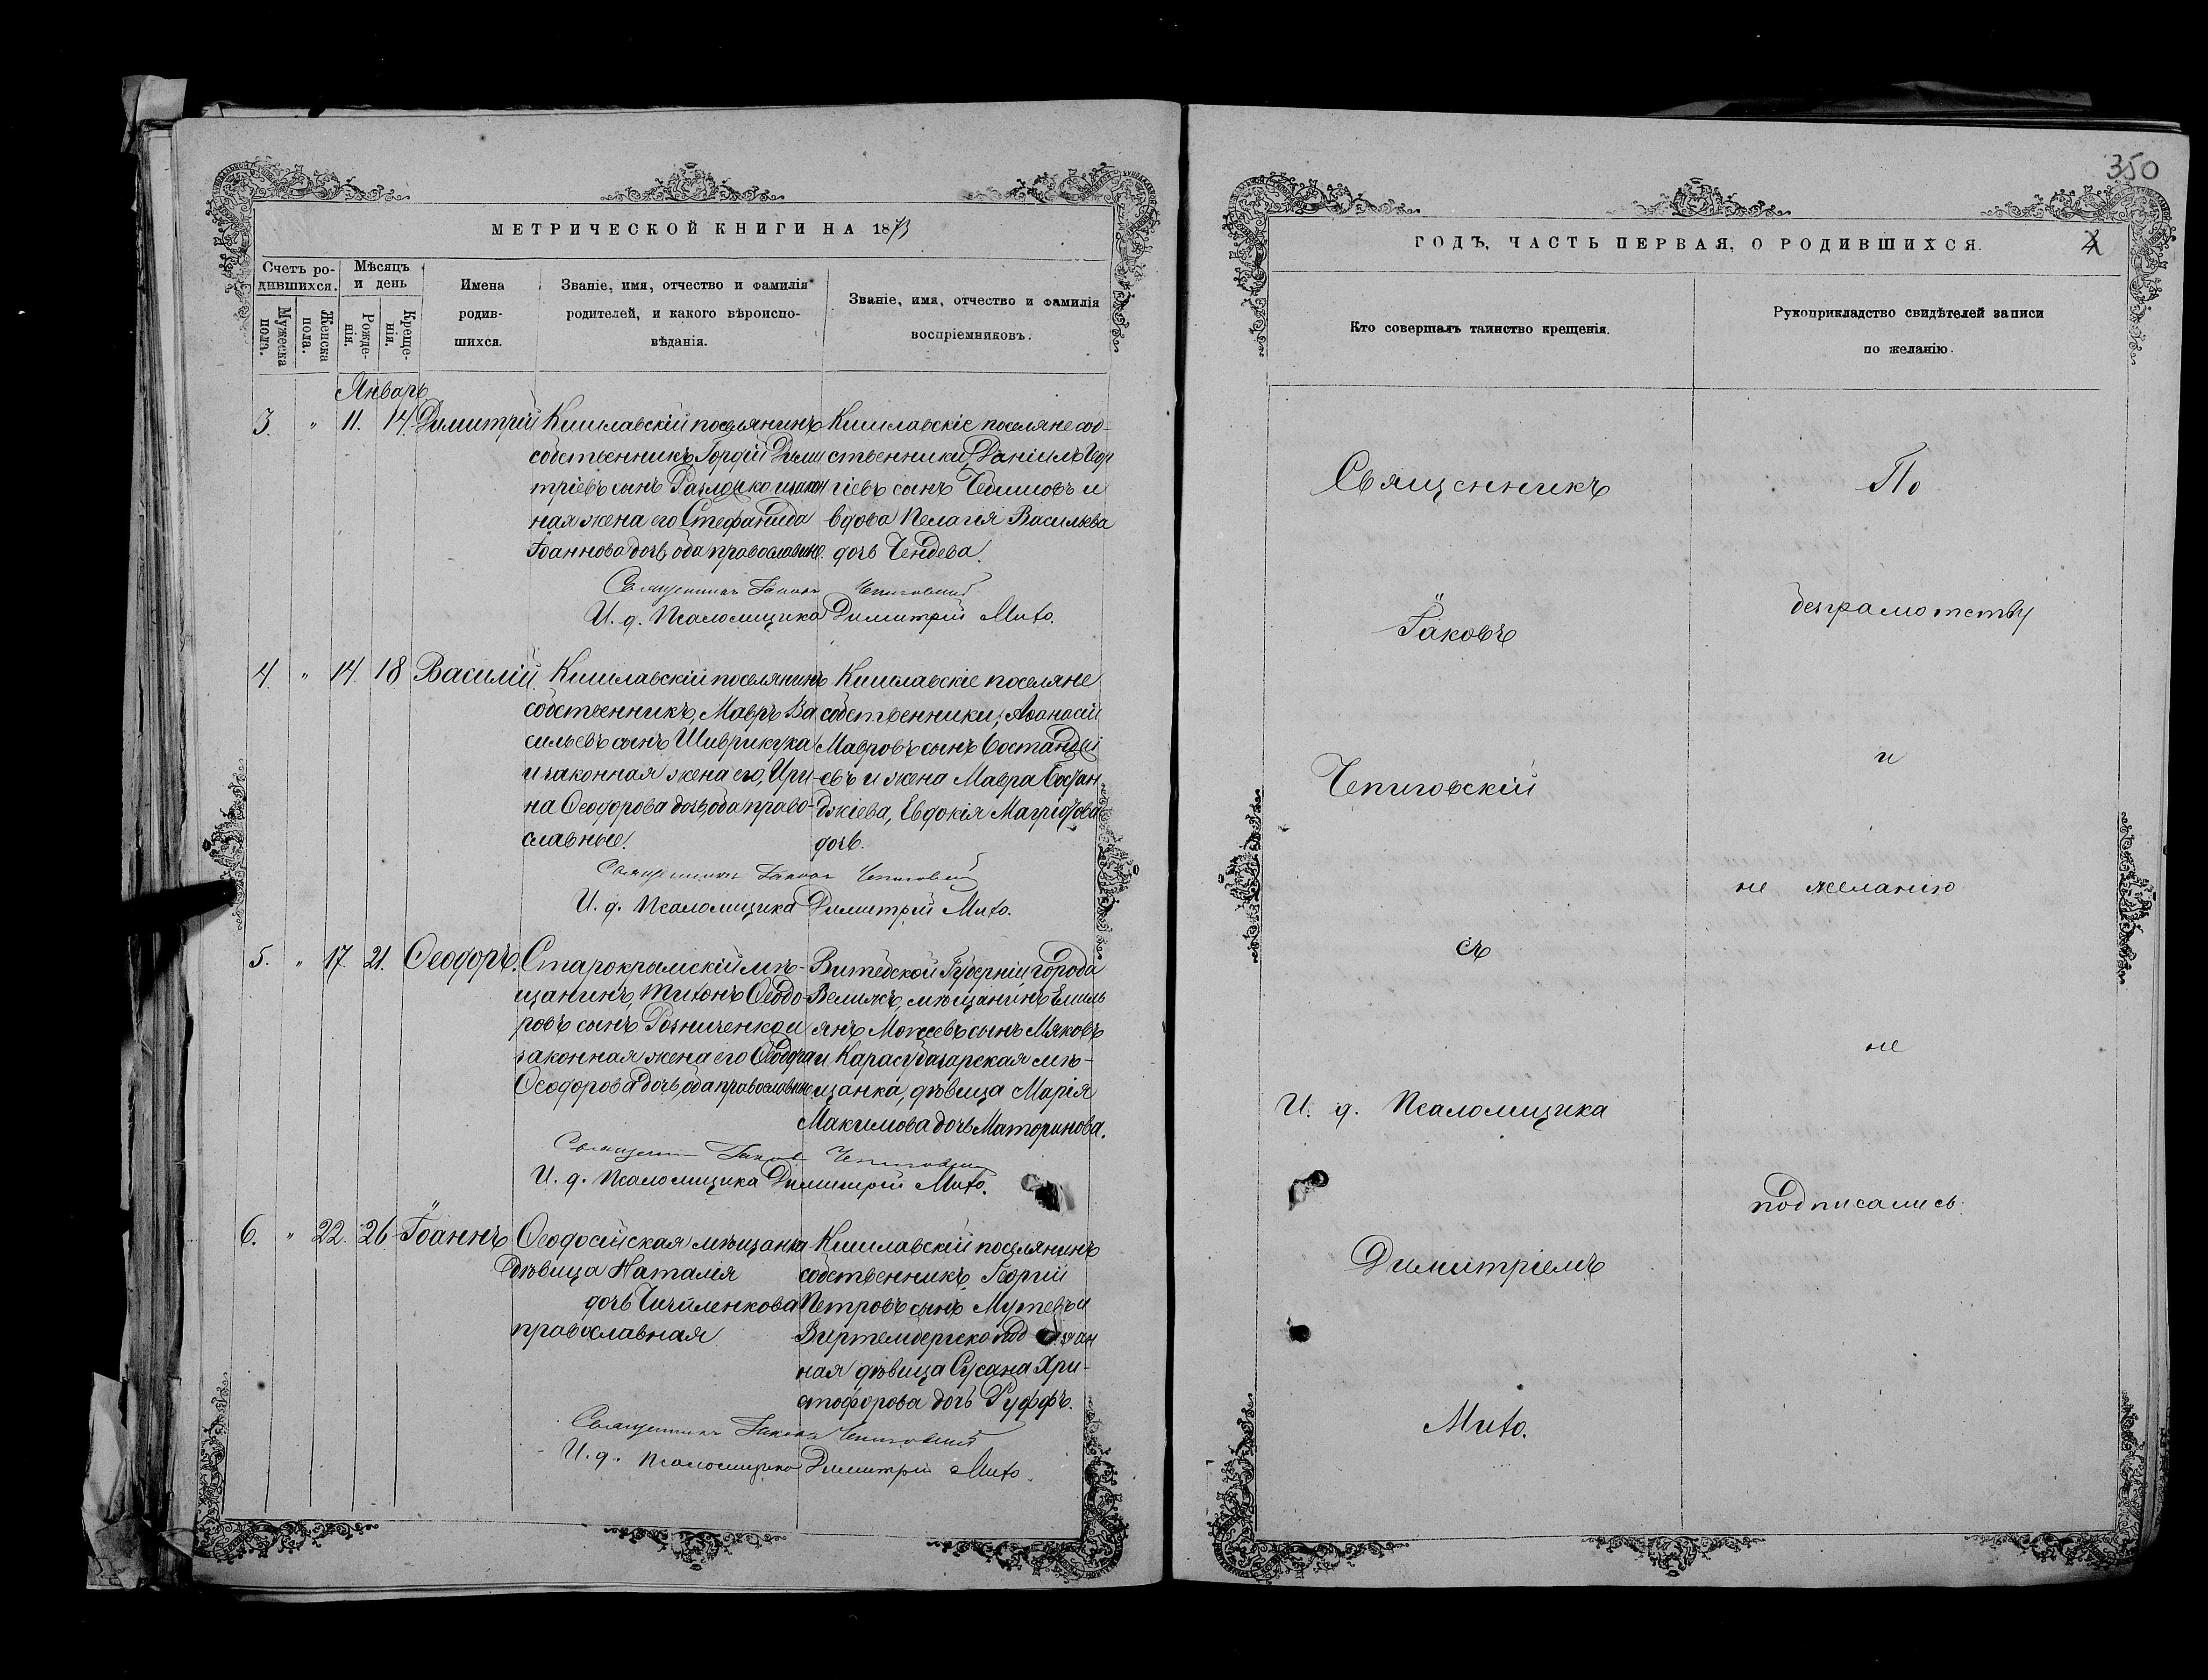 МЕТРИЧЕСКОЙ КНИГИ НА 1873
Счетъ ро-
дившихся.
Мужеска
пола.
Женска
пола.
Мѣсяцъ
и день
Рожде-
нія.
Креще-
нія.
Имена
родив-
шихся.
Званіе, имя, отчество и фамилія
родителей, и какого вѣроиспо-
вѣданія.
Званіе, имя, отчество и фамилія
воспріемниковъ.
Январь
3. " 11. 14. Димитрій
Кишлавскій поселянинъ
собственникъ, Гордій Дими
тріевъ сынъ и закон
ная жена его Стефанида
Іоаннова дочь, оба православные.
Кишлавскіе поселяне соб-
ственники, Даніилъ Геор
гіевъ сынъ и
вдова Пелагія Васильева
дочь Чендева.
Священникъ Іаковъ Чепиговскій
И. д. Псаломщика Димитрій Мито.
4. " 14. 18. Василій.
Кишлавскій поселянинъ
собственникъ, Мавръ Ва
сильевъ сынъ Шиврикука
и законная жена его, Ири-
на Ѳеодорова дочь, оба право-
славные.
Кишлавскіе поселяне
собственники, Аѳанасій
Мавровъ сынъ Состанджі
евъ и жена Мавра Состан
джіева, Евдокія
дочь.
Священникъ Іаковъ Чепиговскій
И. д. Псаломщика Димитрій Мито.
5. " 17. 21. Ѳеодоръ.
Старокрымскій мѣ-
щанинъ, Тихонъ Ѳеодо-
ровъ сынъ Розниченко и
законная жена его
Ѳеодорова дочь, оба православные
Витебской Губерніи, города
Велижъ, мѣщанинъ Емиль
янъ сынъ Мяковъ
и Карасубазарская мѣ-
щанка, дѣвица Марія
Макимова дочь Маторинова.
Священникъ Іаковъ Чепиговскій
И. д. Псаломщика Димитрій Мито.
6. " 22. 26. Іоаннъ
Ѳеодосійская мѣщанка
дѣвица Наталія
дочь Чичиленкова
православная
Кишлавскій поселянинъ
собственникъ Георгій
Петровъ сынъ и
Виртембергско под дан
ная дѣвица Сусана Хри-
стофорова дочь Руффъ.
Священникъ Іаковъ Чепиговскій
И. д. Псаломщика Димитрій Мито.
350
ГОДЪ, ЧАСТЬ ПЕРВАЯ, О РОДИВШИХСЯ.
Кто совершалъ таинство крещенія.
Рукоприкладство свидѣтелей записи
по желанію.
Священникъ
Іаковъ
Чепиговскій
съ
И. д. Псаломщика
Димитріемъ
Мито.
По
безграмотству
и
не желанію
не
подписались.